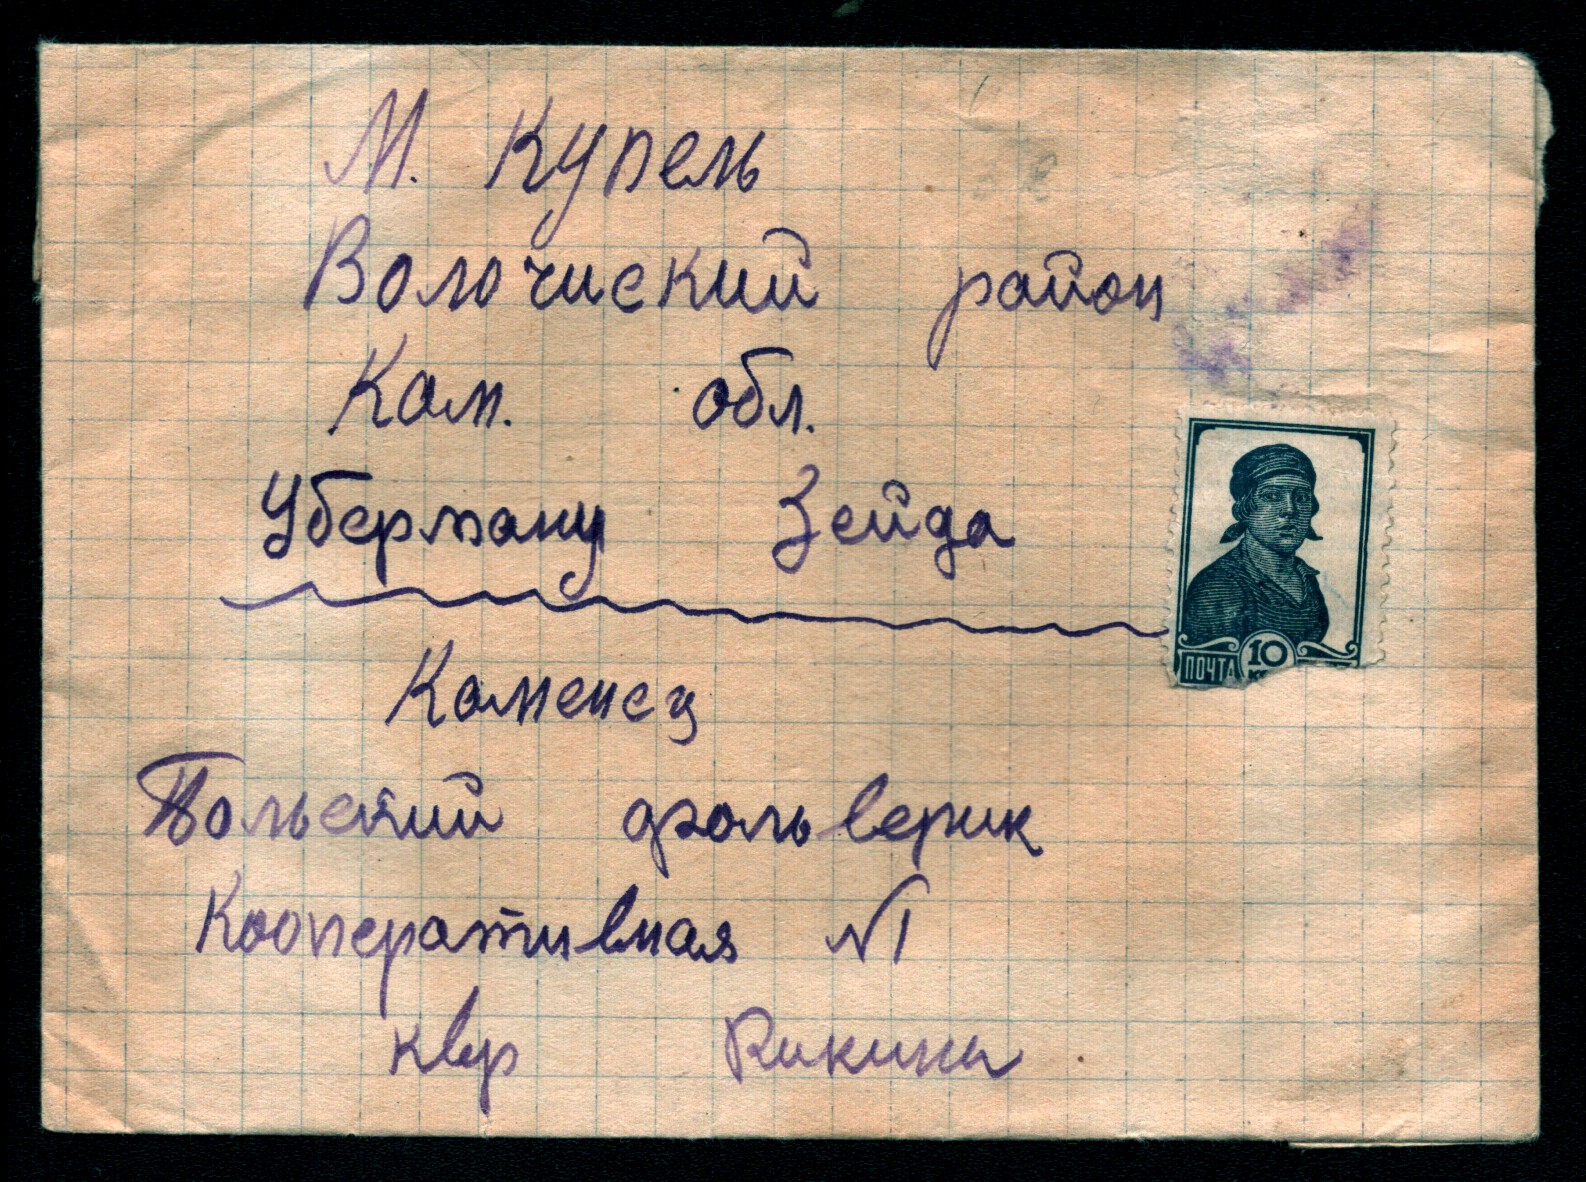 М. Купель
Волочиский район
Кам. обл.
Уберману Зейда
Каменец
Польский фольверик
Кооперативная №1
квр
ПОЧТА 10